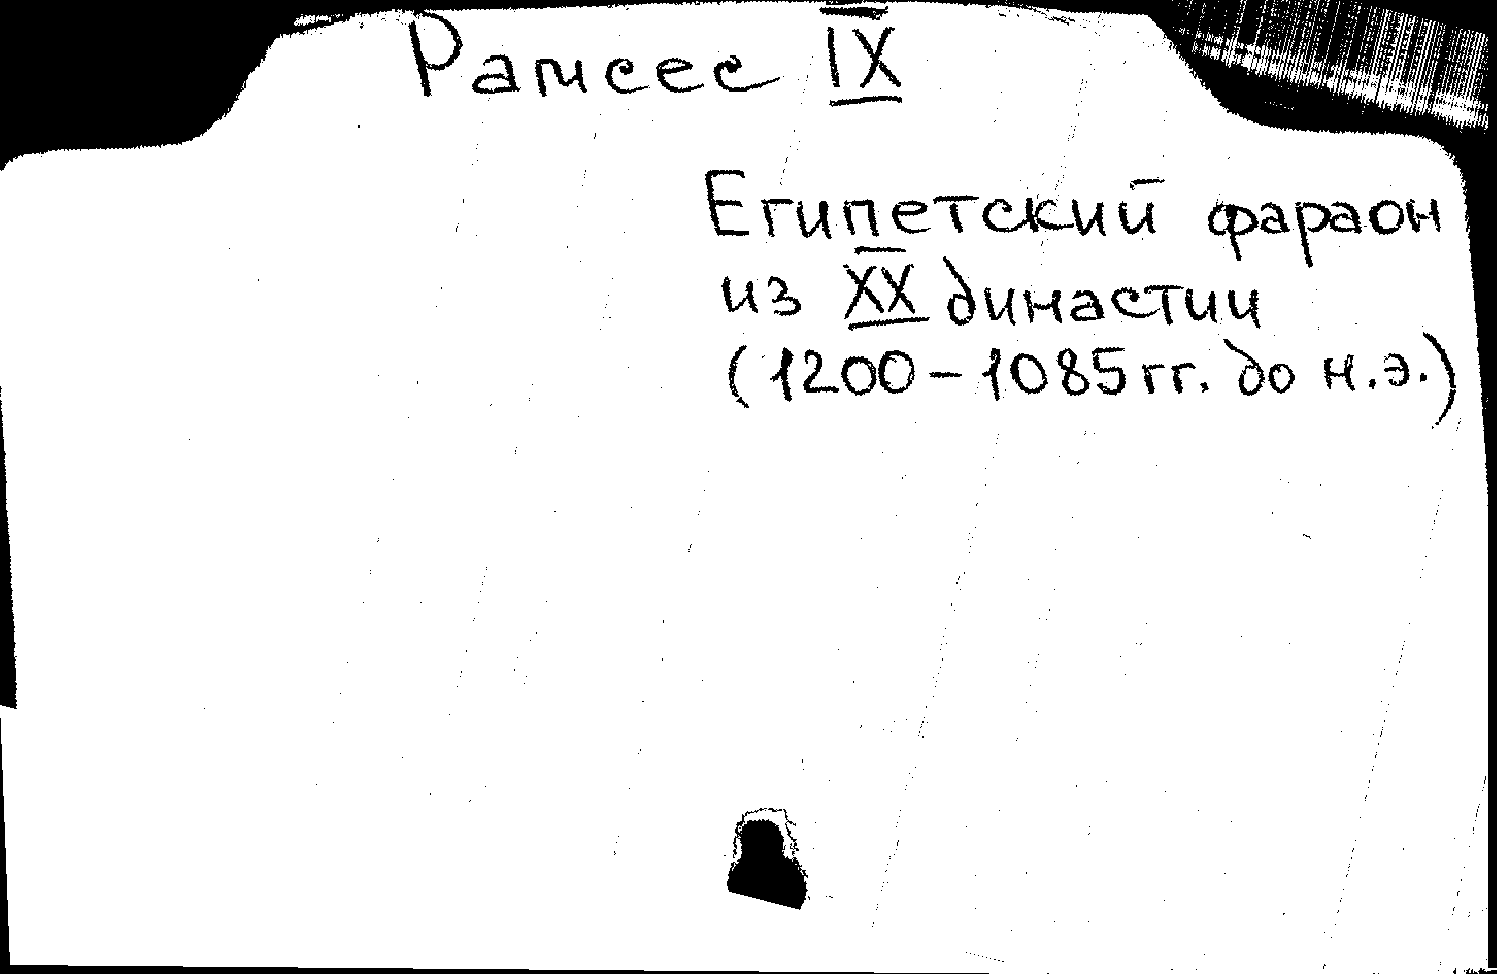 Рамсес IX
Египетский фараон
из XX династии
(1200-1085 гг. до н.э.)